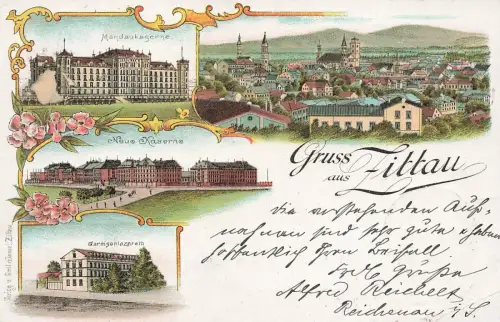 Mandaukaserne
Neue Kaserne
Garnisonlazareth
Gruss
aus
Zittau
die vorstehenden Auf-
nahmen sind sehr gut & haben
hoffentlich Ihren Beifall
Grüße
Alfred Reichelt
Reichenau i/S.